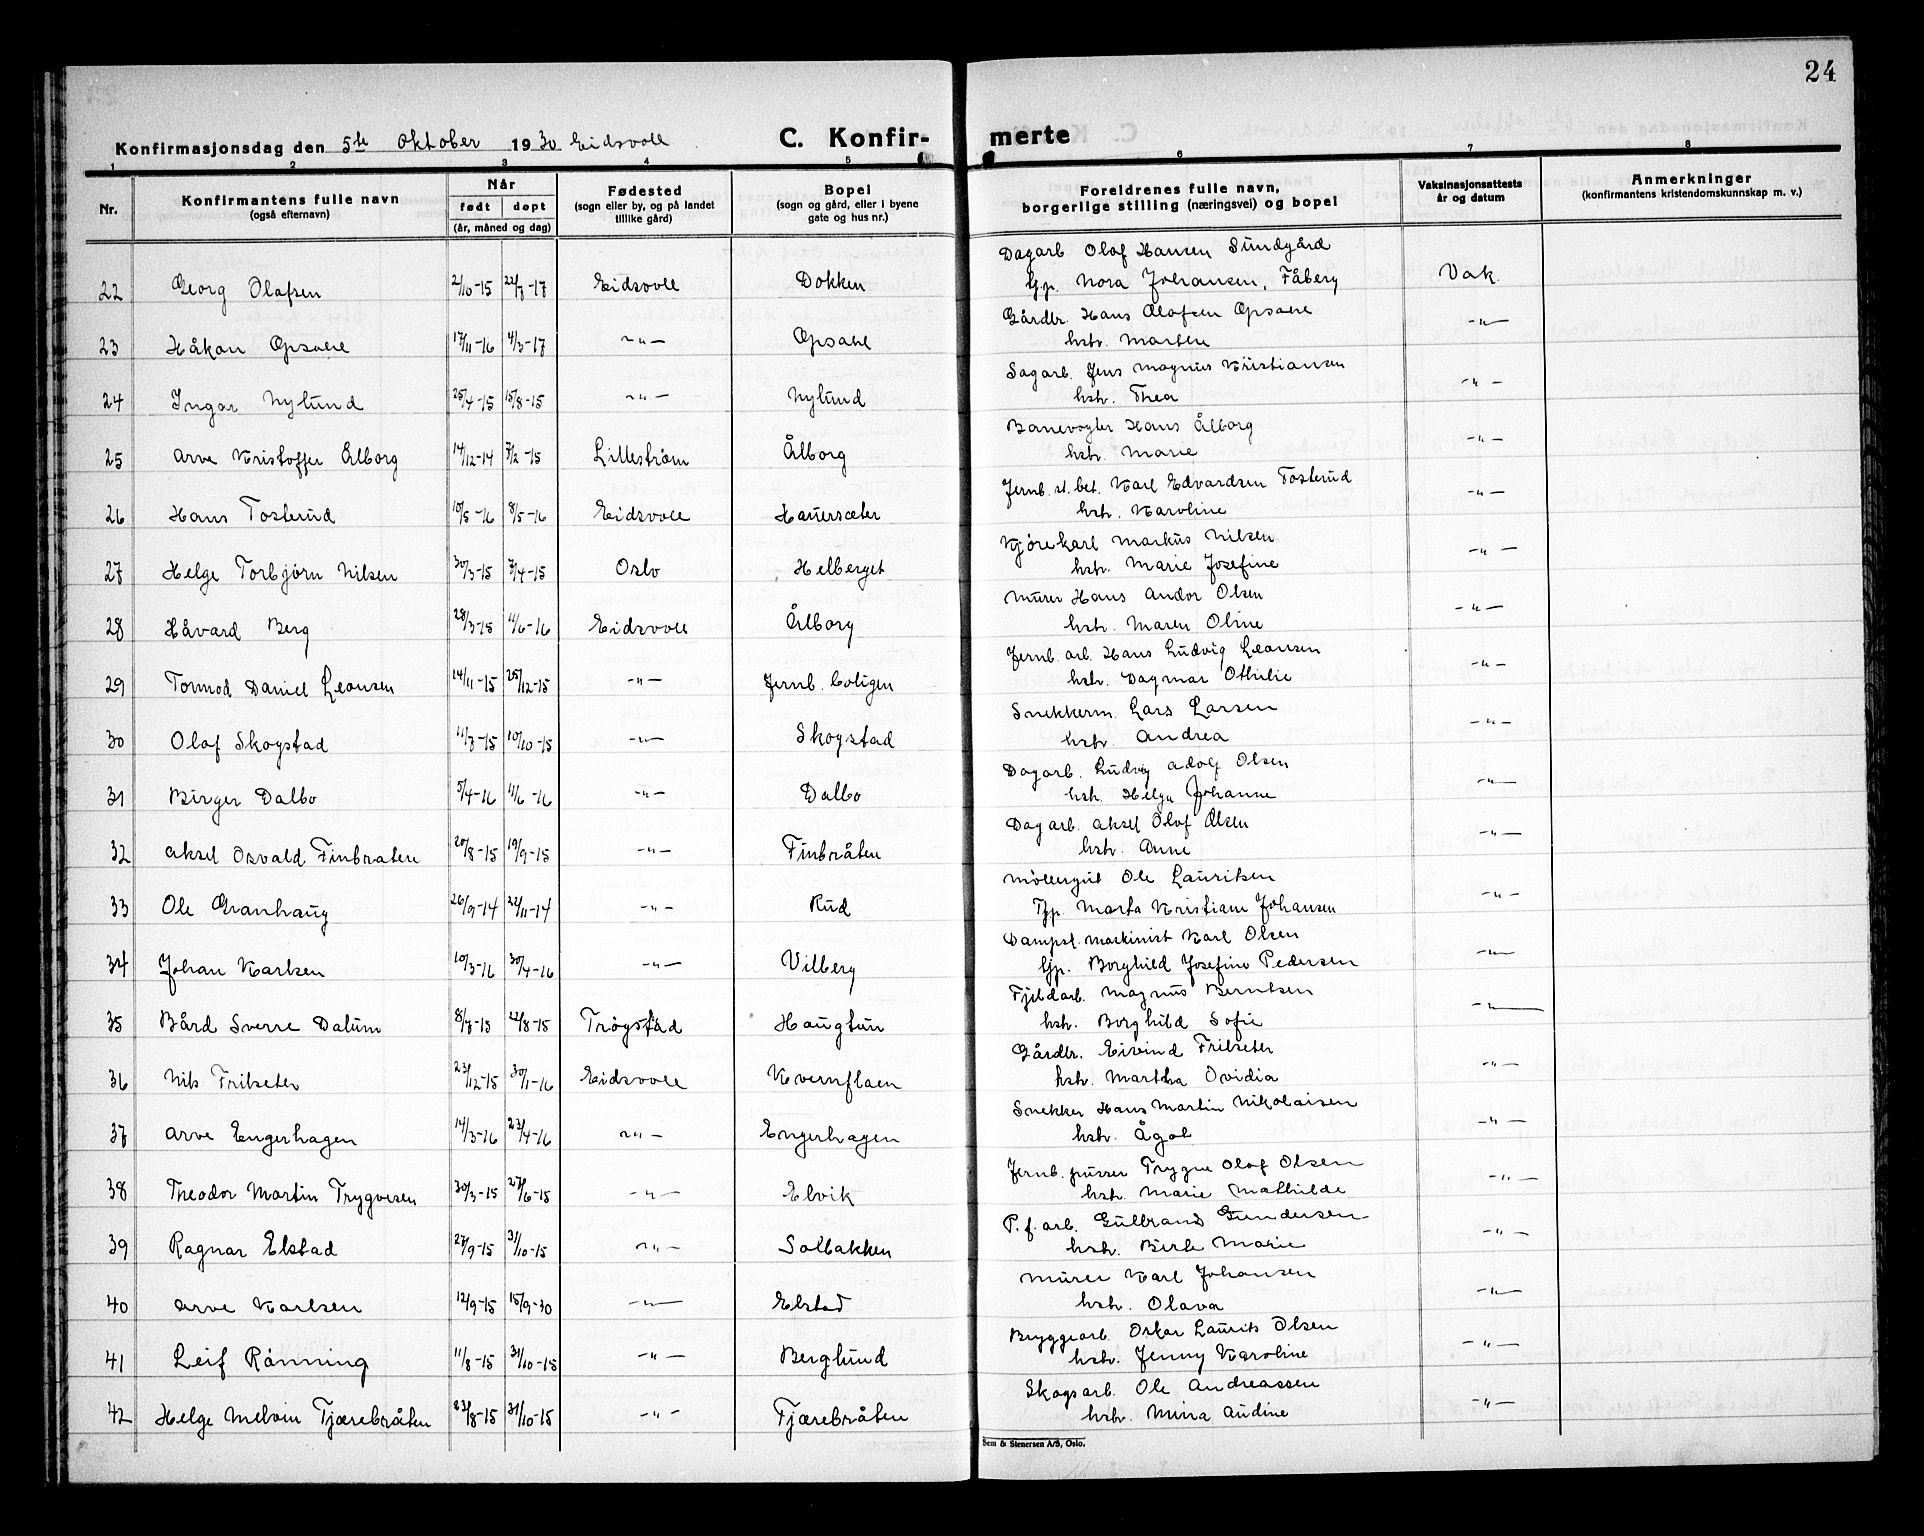 24
Konfirmasjonsdag den 5te Oktober 1930 Eidsvoll C. Konfirmerte
1 2 3 4 5 6 7 8
Nr. Konfirmantens fulle navn (også efternavn) Når født døpt (år, måned og dag) Fødested (sogn eller by, og på landet tillike gård) Bopel (sogn og gård, eller i byene gate og hus nr.) Foreldrenes fulle navn, borgerlige stilling (næringsvei) og bopel Vaksinasjonsattests år og datum Anmerkninger (konfirmantens kristendomskunnskap m. v.)
22 Georg Olafsen 2/10-15 22/7-17 Eidsvoll Dokken Dagarb Olaf Hansen Sundgård
Gp. Nora Johansen, Fåberg Vak.
23 Håkon Opsahl 17/11-16 4/3-17 -"- Opsahl Gårdbr. Hans Olafsen Opsahl
hstr. Marten -"-
24 Ingar Nylund 25/4-15 15/8-15 -"- Nylund Sagarb. Jens Magnus Kristiansen
hstr. Thea -"-
25 Arve Kristoffer Ålborg 14/12-14 7/2-15 Lillestrøm Ålborg Banevogter Hans Ålborg
hstr. Marie -"-
26 Hans Tosterud 10/5-16 8/5-16 Eidsvoll Hauerseter Jernb. st. bet. Karl Edvardsen Tosterud
hstr. Karoline -"-
27 Helge Torbjørn Nilsen 30/3-15 7/4-15 Oslo Helberget Kjørekarl Markus Nilsen
hstr. Marie Josefine -"-
28 Håvard Berg 28/3-15 4/6-16 Eidsvoll Ålborg Murer Hans Andor Olsen
hstr. Maren Oline -"-
29 Tormod Daniel Leonsen 14/11-15 25/12-15 -"- Jernb. boligen Jernb. arb. Hans Ludvig Leonsen
hstr. Dagmar Othilie -"-
30 Olaf Skogstad 11/7-15 10/10-15 -"- Skogstad Snekkerm. Lars Larsen
hstr. Andrea -"-
31 Birger Dalbo 5/4-16 11/6-16 -"- Dalbo Dagarb. Ludvig Adolf Olsen
hstr. Helga Johanne -"-
32 Aksel Osvald Finbraten 20/8-15 19/9-15 -"- Finbråten Dagarb. Aksel Olaf Olsen
hstr. Anne -"-
33 Ole Granhaug 26/9-14 22/11-14 -"- Rud Møllergut Ole Lauritsen
Tjp. Marta Kristiane Johansen -"-
34 Johan Karlsen 10/3-16 30/4-16 -"- Vilberg Dampsk. maskinist Karl Olsen
Gp. Borghild Josefine Pedersen -"-
35 Bård Sverre Dalum 8/7-15 22/8-15 Trøgstad Haugtun Fjeldarb. Magnus Berntsen
hstr. Borghild Sofie -"-
36 Nils Frilseter 23/12-15 30/1-16 Eidsvoll Kvernflaen Gårdbr. Eivind Frilseter
hstr. Martha Ovidia -"-
37 Arve Engerhagen 14/3-16 23/4-16 -"- Engerhagen Snekker Hans Martin Nikolaisen
hstr. Ågot -"-
38 Theodor Martin Trygvesen 30/3-15 27/6-15 -"- Elvik Jernb. pusser Trygve Olaf Olsen
hstr. Marie Mathilde -"-
39 Ragnar Elstad 27/9-15 31/10-15 -"- Solbakken P. f. arb. Gulbrand Gundersen
hstr. Birte Marie -"-
40 Arve Karlsen 12/9-15 15/9-30 -"- Elstad Murer Karl Johansen
hstr. Olava -"-
41 Leif Rønning 11/8-15 31/10-15 -"- Berglund Bryggearb. Oskar Laurits Olsen
hstr. Jenny Karoline -"-
42 Helge Melvin Tjærebråten 23/8-15 31/10-15 -"- Tjærebråten Skogsarb. Ole Andreassen
hstr. Mina Audine -"-
Sem & Stenersen A/S, Oslo.